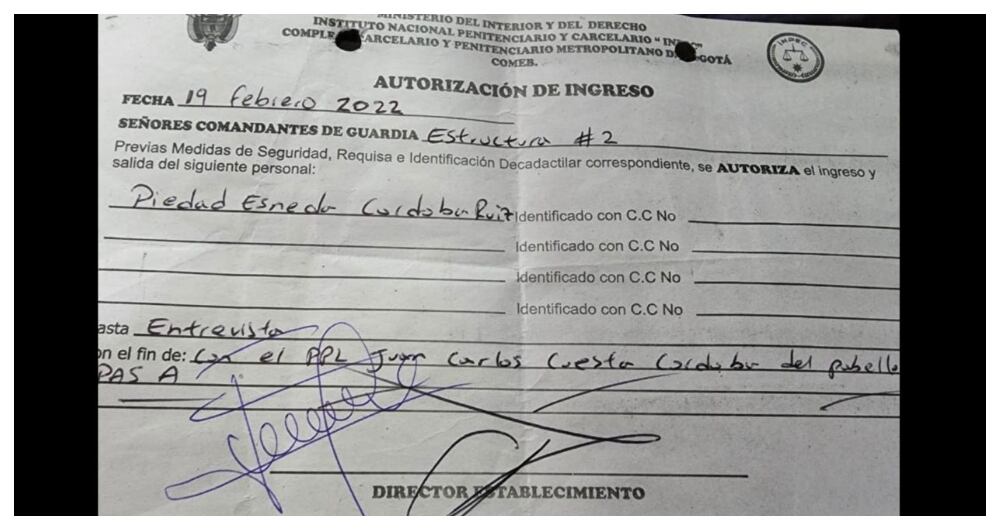 MINISTERIO DEL INTERIOR Y DEL DERECHO
INSTITUTO NACIONAL PENITENCIARIO Y CARCELARIO " INPEC"
CARCELARIO Y PENITENCIARIO METROPOLITANO
COMEB.
INPEC
AUTORIZACIÓN DE INGRESO
FECHA 19 febrero 2022
SEÑORES COMANDANTES DE GUARDIA Estructura # 2
Previas Medidas de Seguridad, Requisa e Identificación Decadactilar correspondiente, se AUTORIZA el ingreso y
salida del siguiente personal:
Piedad Esneda Cordoba Ruiz Identificado con C.C No
Identificado con C.C No
Identificado con C.C No
Identificado con C.C No
asta Entrevista
on el fin de: Con el PPL Juan Carlos Cuesta Cordoba del pabello
PAS A
DIRECTOR ESTABLECIMIENTO